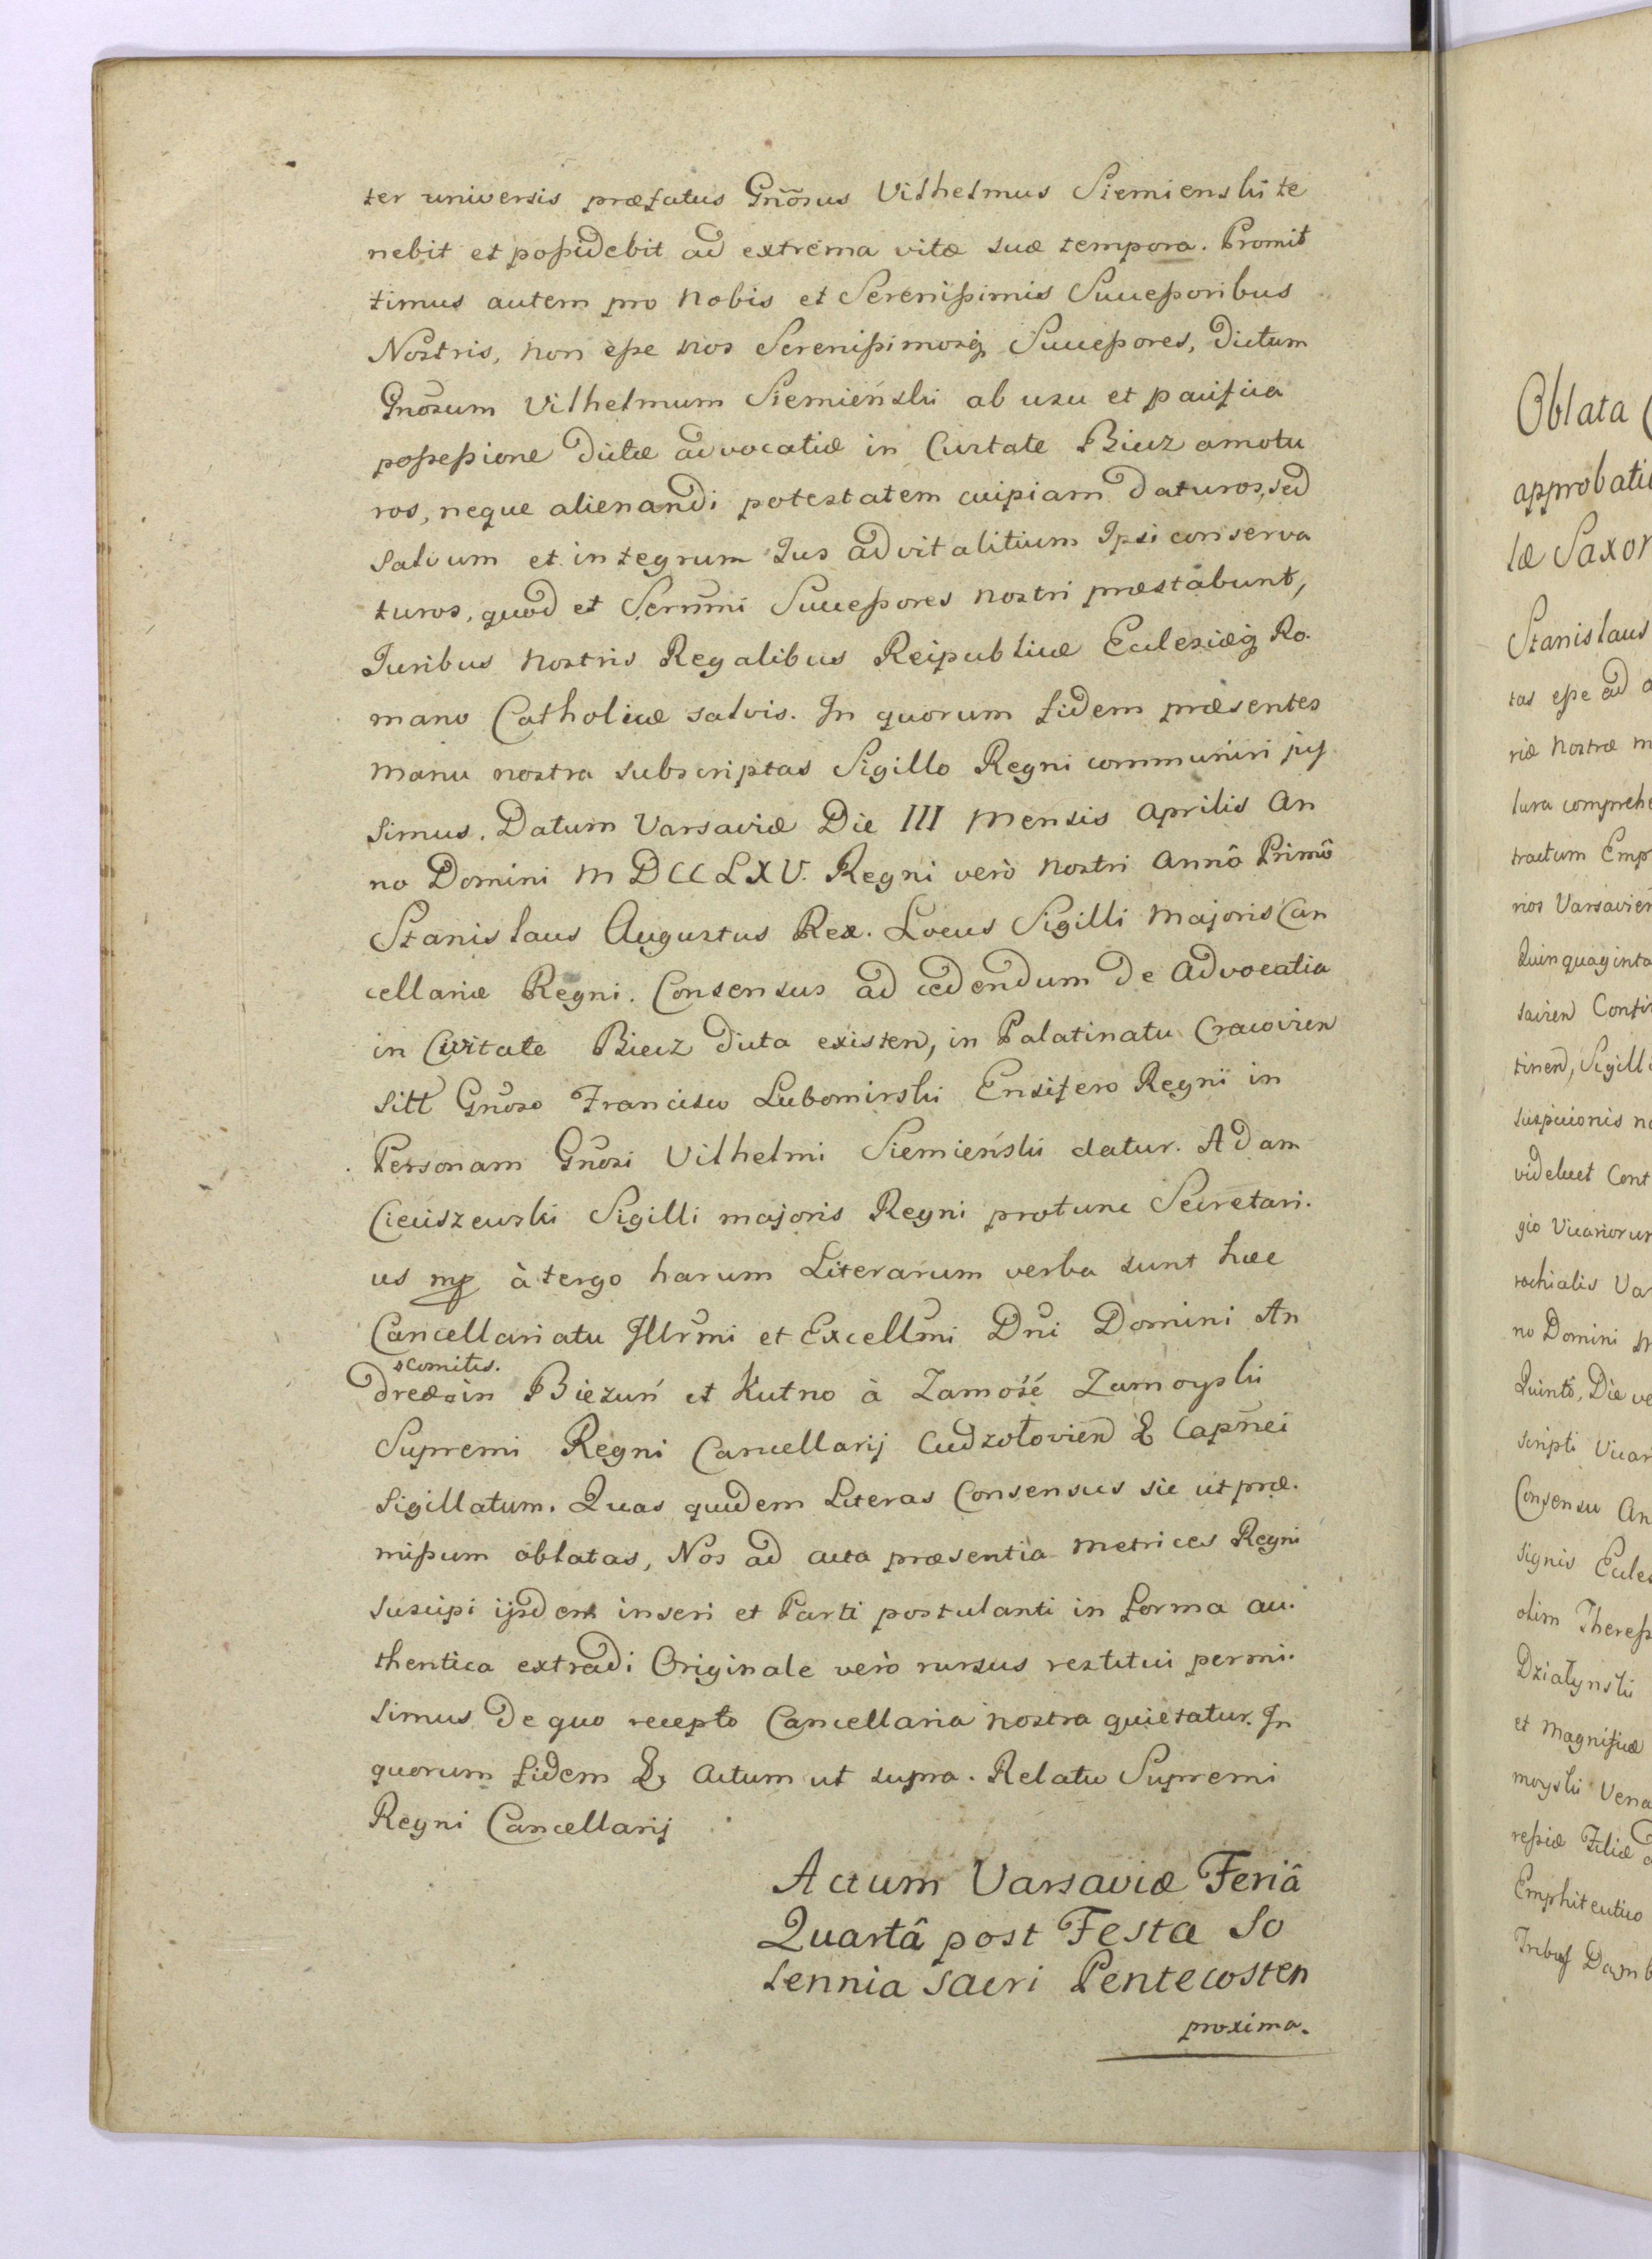 ter universis præfatus Gnõsus Vilhelmus Siemienski te
nebit et poßidebit ad extrema vitæ suæ tempora. Promit
timus autem pro Nobis et Serenißimis Succeßoribus
Nostris, non eße nos Serenißimosq Succeßores, dictum
Gnõsum Vilhelmum Siemieński ab usu et pacifica
poßeßione dictæ advocatiæ in Civitate Biecz amotu
ros, neque alienandi potestatem cuipiam daturos, sed
salvum et integrum Jus advitalitium Ipsi conserva
turos, quod et Serñmi Succeßores nostri præstabunt,
Juribus nostris Regalibus Reipublicæ Ecclesiæq Ro.
mano Catholicæ salvis. In quorum fidem præsentes
manu nostra subscriptas Sigillo Regni communiri jus
simus. Datum Varsaviæ Die III Mensis Aprilis An
no Domini MDCCLXV. Regni verò Nostri Annô Primô
Stanislaus Augustus Rex. Locus Sigilli Majoris Can
cellariæ Regni. Consensus ad cedendum de Advocatia
in Civitate Biecz dicta existen, in Palatinatu Cracovien
sitt Gnõso Francisco Lubomirski Ensifero Regni in
Personam Gnõsi Vilhelmi Siemieński datur. Adam
Cieciszewski Sigilli majoris Regni protunc Secretari.
us mp à tergo harum Literarum verba sunt hæc
Cancellariatu Jllrmi et Excellmi Dni Domini An
comitis.
dreæ in Bieżuń et Kutno à Zamość Zamoyski
Supremi Regni Cancellarij Cudzołovien & Capñei
Sigillatum. Quas quidem Literas Consensus sic ut præ.
mißum oblatas, Nos ad acta præsentia Metrices Regni
suscipi ijsdem inseri et Parti postulanti in forma au.
thentica extradi Originale verò rursus restitui permi.
simus de quo recepto Cancellaria nostra quietatur. In
quorum fidem & Actum ut supra. Relatio Supremi
Regni Cancellarij
Actum Varsaviæ Feriâ
Quartâ post Festa So
lennia Sacri Pentecosten
proxima.
Oblata
approbati
læ Saxon
Stanislaus
tas eße ad
riæ nostræ m
lura comprehe
tractum Emp
rios Varsavien
Quinquaginta
savien Consi
tinen, Sigill
suspicionis no
videlicet Cont
gio Vicariorum
rochialis Va
no Domini M
Quintô, Die ve
scripti Vicar
Consensu An
signis Eccles
olim Thereß
Działynski
et Magnificæ
moyski Vena
reßiæ Filiæ
Emphiteutico